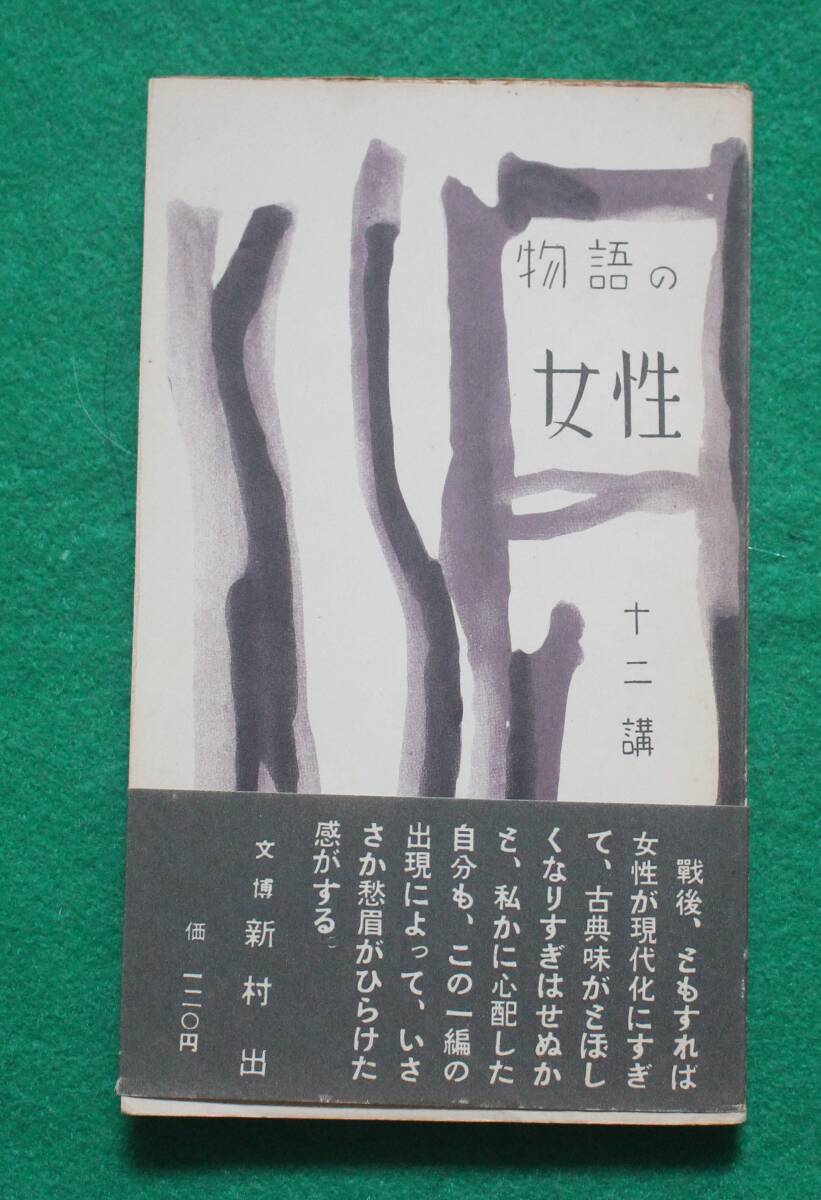 物語の
女性
十二講
戰後、ともすれば
女性が現代化にすぎ
て、古典味がとぼし
くなりすぎはせぬか
と、私かに心配した
自分も、この一編の
出現によって、いさ
さか愁眉がひらけた
感がする。
文博 新村出
価 一二〇円